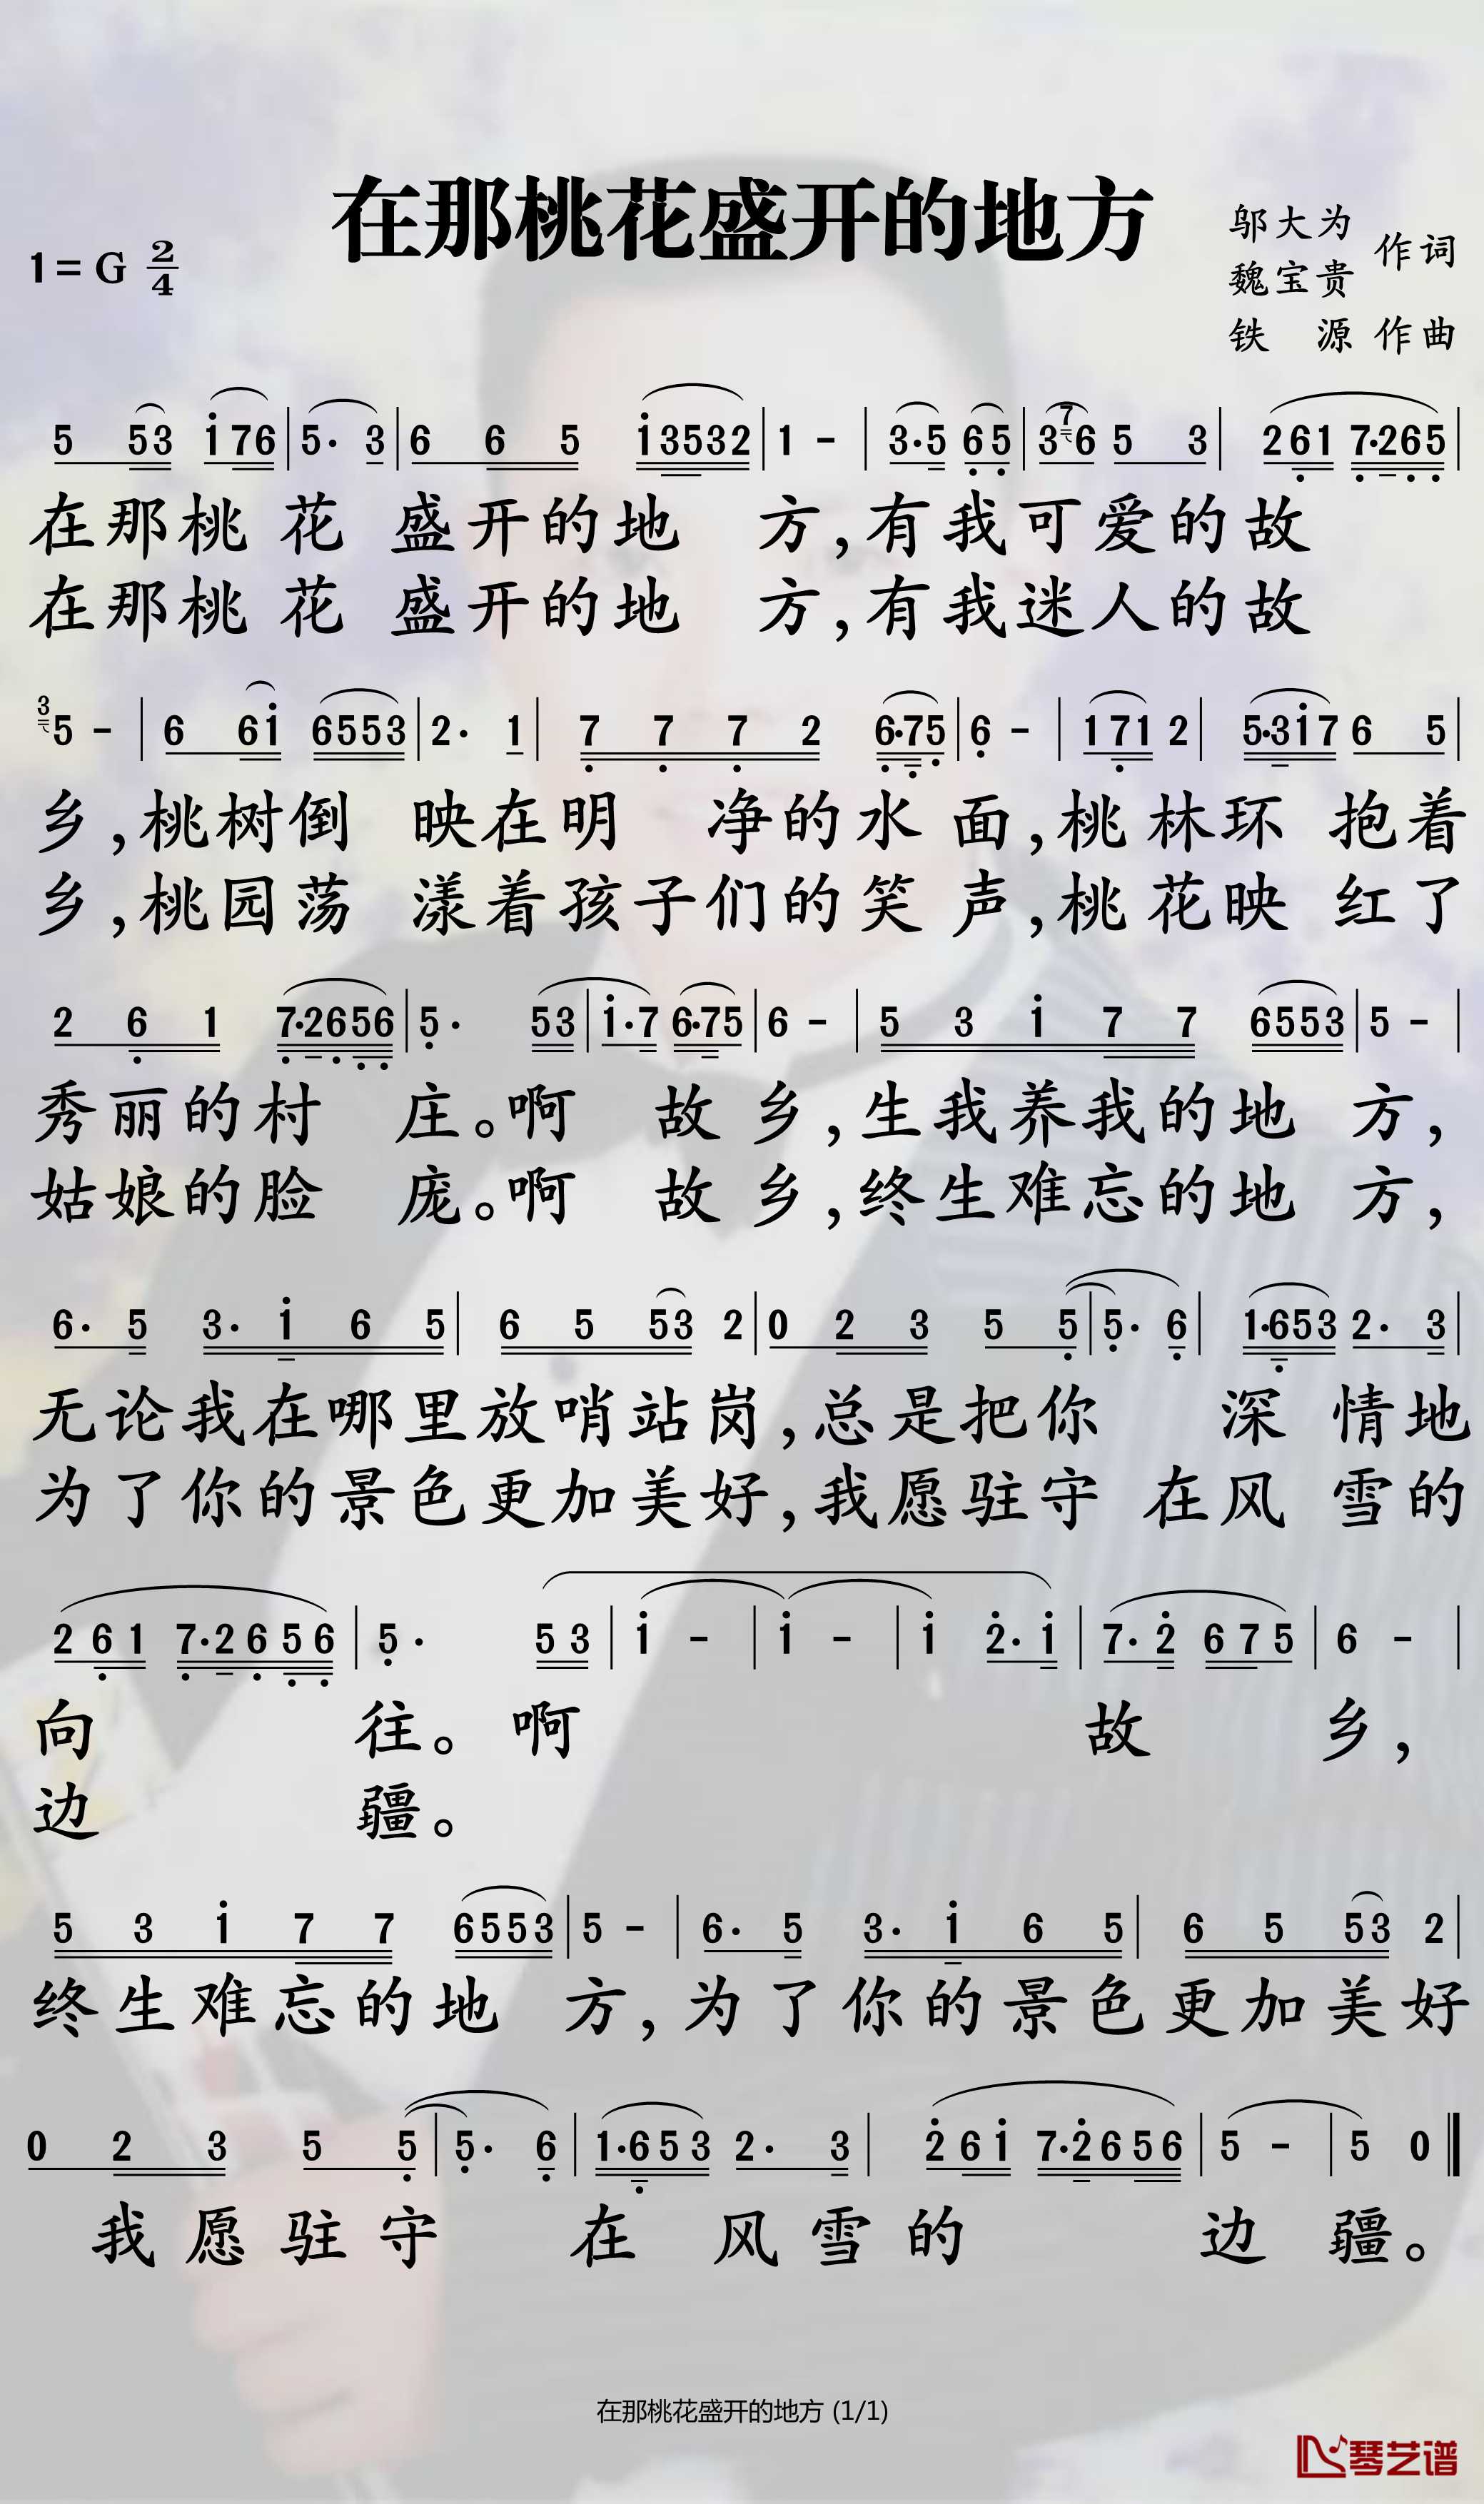 在那桃花盛开的地方
1=G 2/4
邬大为
魏宝贵 作词
铁 源 作曲
5 53 i 76 | 5· 3 | 6 6 5 i3532 | 1 - | 3·5 65 | 3 7 6 5 3 | 261 7·265 |
在那桃花盛开的地 方,有我可爱的故
在那桃花盛开的地 方,有我迷人的故
3 5 - | 6 6i 6553 | 2· 1 | 7 7 7 2 6·75 | 6 - | 171 2 | 5·3i7 6 5 |
乡,桃树倒 映在明 净的水 面,桃林环 抱着
乡,桃园荡 漾着孩子们的笑 声,桃花映 红了
2 6 1 7·2656 | 5· 53 | i·7 6·75 | 6 - | 5 3 i 7 7 6553 | 5 - |
秀丽的村 庄。啊 故乡,生我养我的地 方,
姑娘的脸 庞。啊 故乡,终生难忘的地 方,
6· 5 3· i 6 5 | 6 5 53 2 | 0 2 3 5 5 | 5· 6 | 1·653 2· 3 |
无论我在哪里放哨站岗,总是把你 深 情地
为了你的景色更加美好,我愿驻守 在风 雪的
261 7·2656 | 5· 53 | i - | i - | i 2·i | 7·2 675 | 6 - |
向 往。啊 故 乡,
边 疆。
5 3 i 7 7 6553 | 5 - | 6· 5 3· i 6 5 | 6 5 53 2 |
终生难忘的地 方,为了你的景色更加美好
0 2 3 5 5 | 5· 6 | 1·653 2· 3 | 26i 7·2656 | 5 - | 5 0 ‖
我愿驻守 在 风雪的 边 疆。
在那桃花盛开的地方 (1/1)
琴艺谱